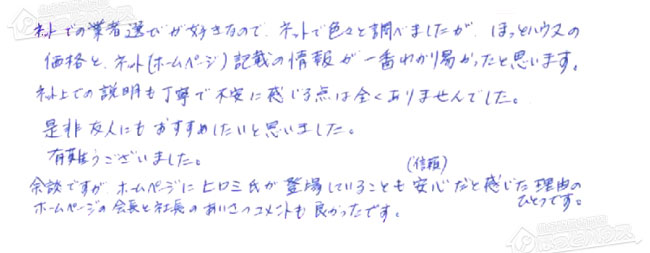 ネットでの業者選びが好きなので、ネットで色々と調べましたが、ほっとハウスの
価格と、ネット(ホームページ)記載の情報が一番わかり易かったと思います。
ネット上での説明も丁寧で不安に感じる点は全くありませんでした。
是非友人にもおすすめしたいと思いました。
有難うございました。
(信頼)
余談ですが、ホームページにヒロミ氏が登場していることも安心だと感じた理由の
ひとつです。
ホームページの会長と社長のあいさつコメントも良かったです。